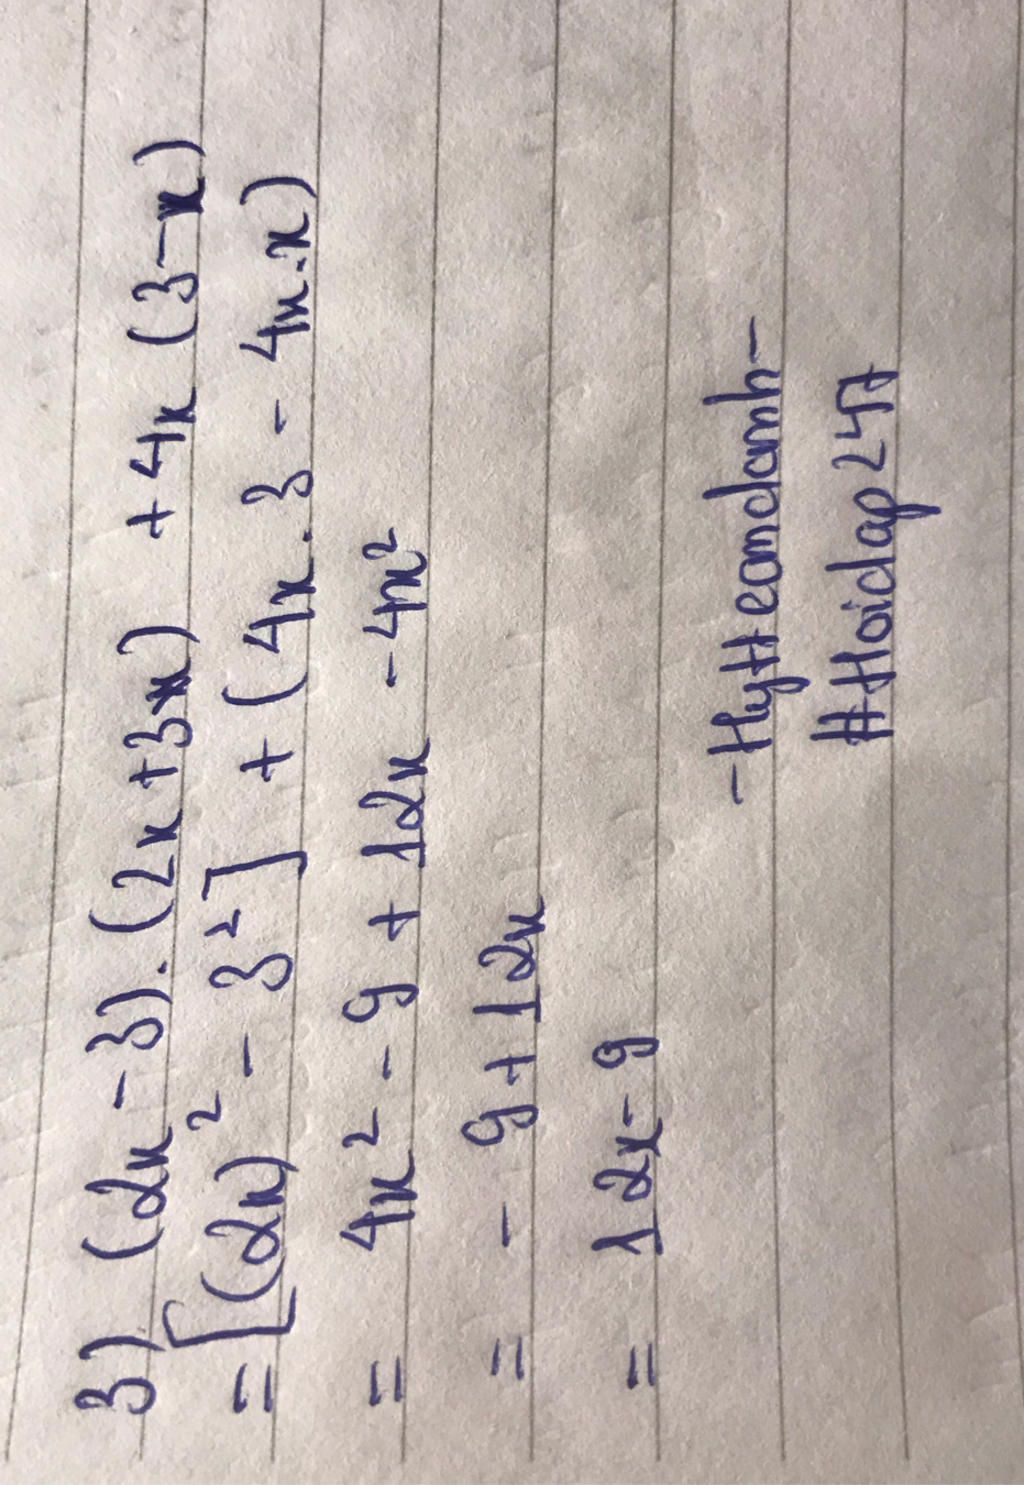 3) (2x - 3).(2x + 3x) + 4x (3 - x)
= [(2x)² - 3²] + (4x . 3 - 4x.x)
= 4x² - 9 + 12x - 4x²
= - 9 + 12x
= 12x - 9
- HyHeomdamh -
#Hoidap247